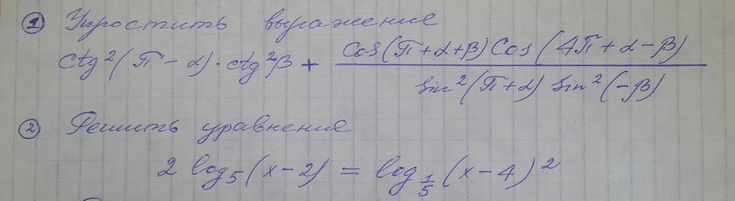 ① Упростить выражение
ctg²(π-α)·ctg²β + cos(π+α+β)cos(4π+α-β) / sin²(π+α) sin²(-β)
② Решить уравнение
2 log₅(x-2) = log_{1/5}(x-4)²